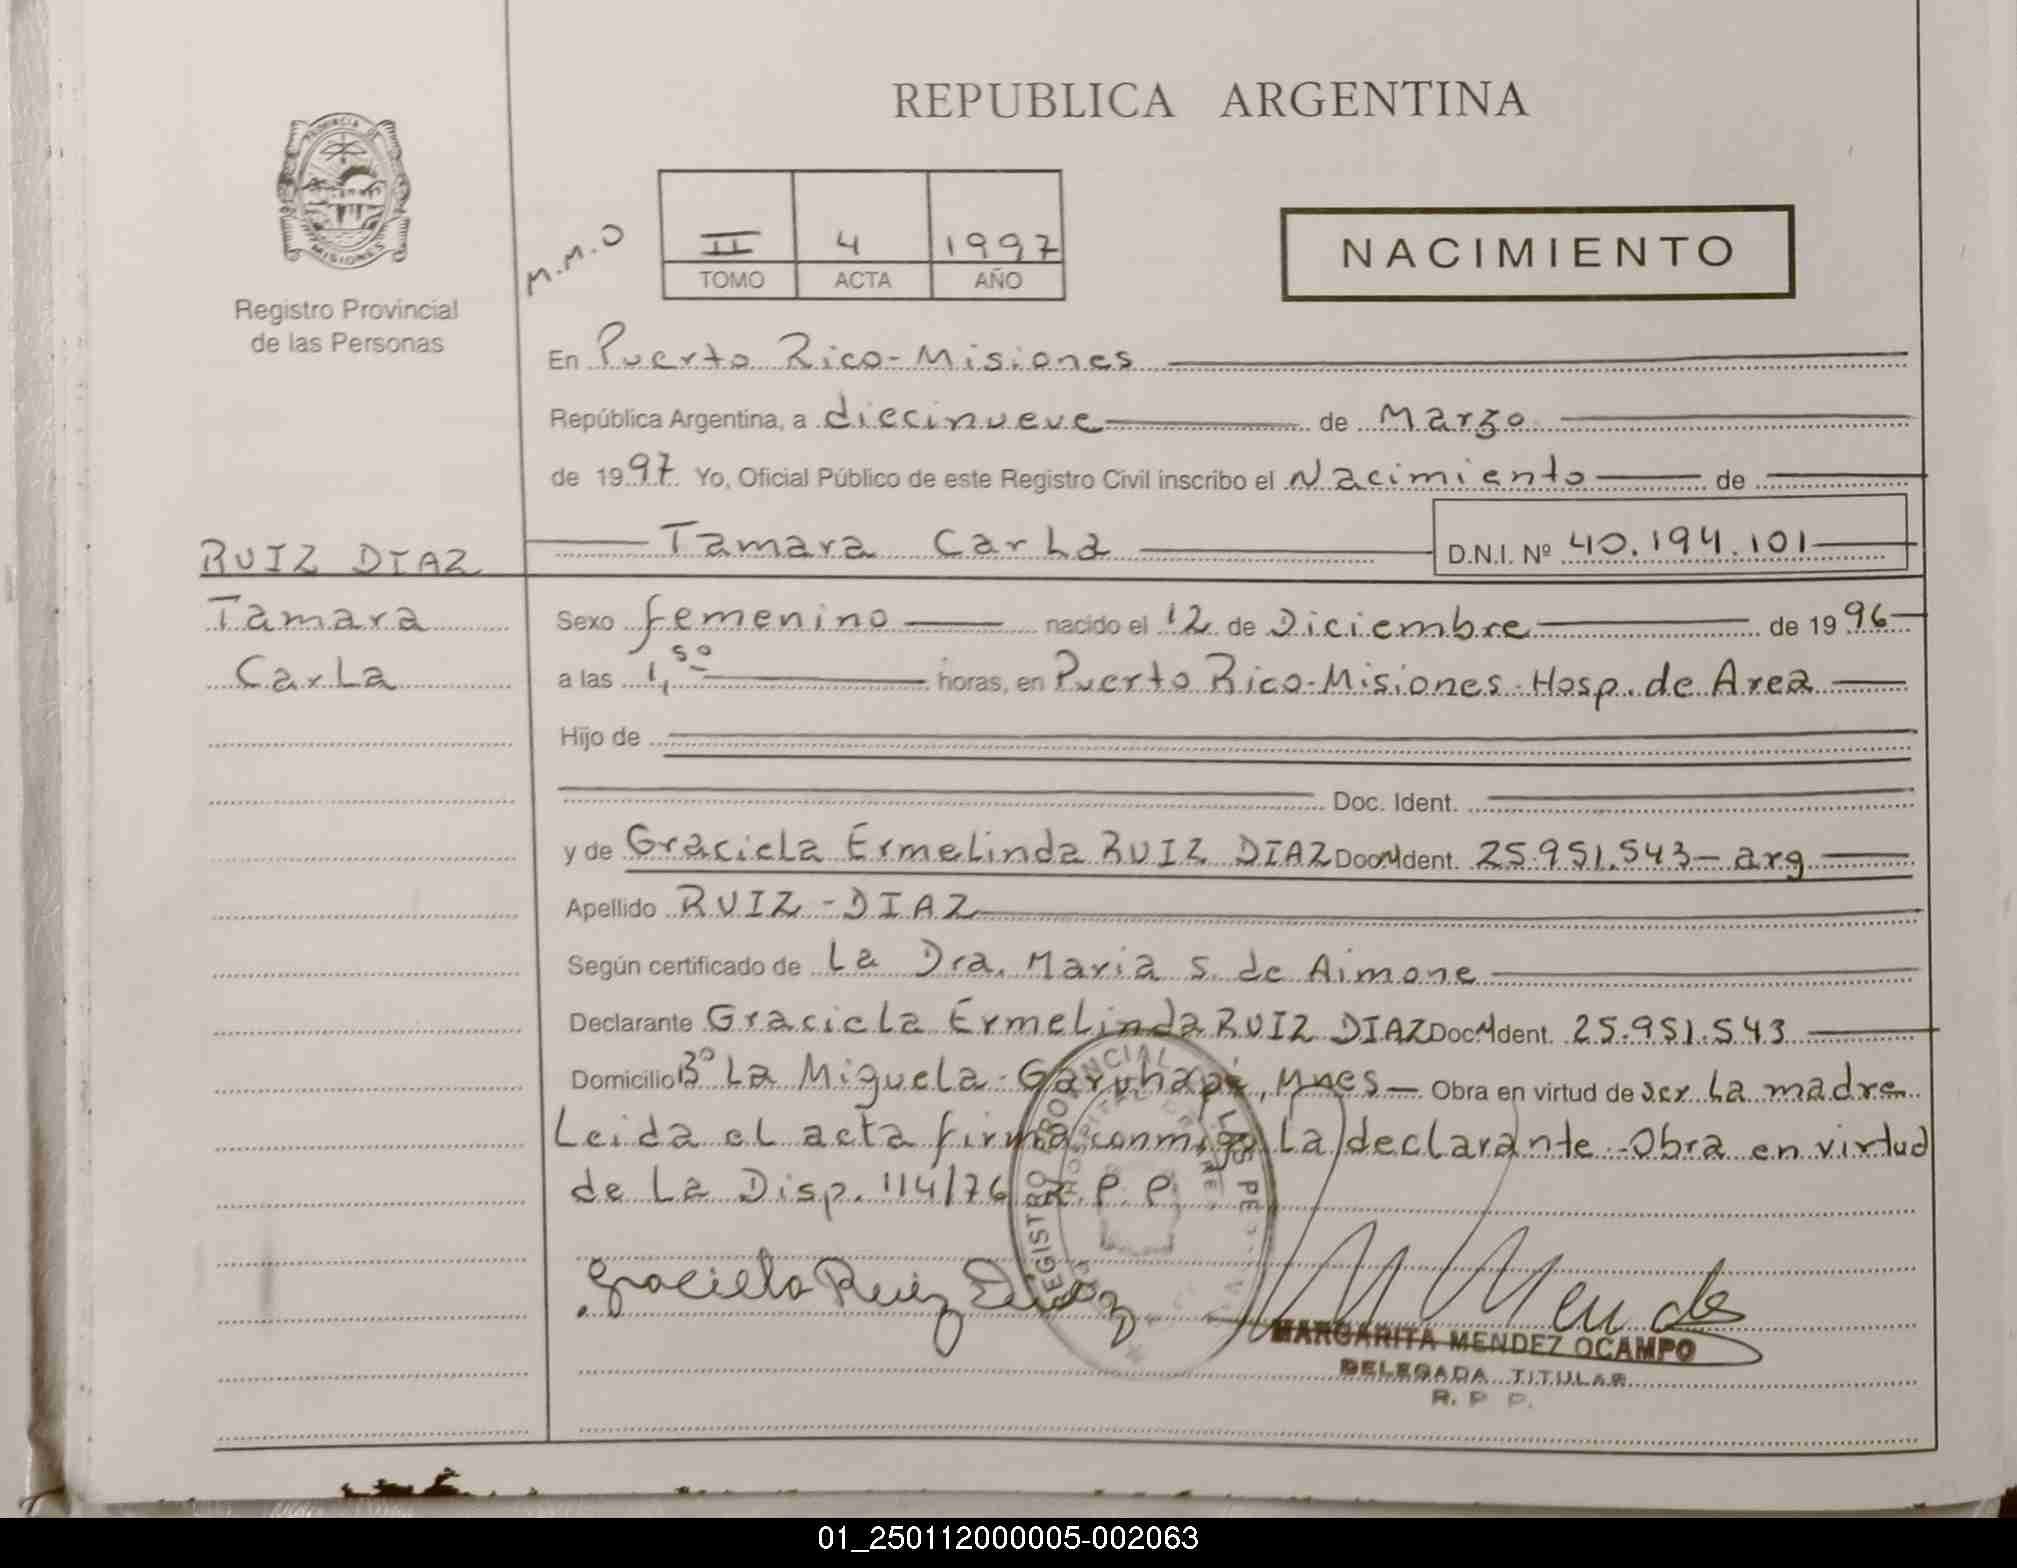 REPUBLICA ARGENTINA
PROVINCIA DE MISIONES
Registro Provincial
de las Personas
M.M.O
II 4 1997
TOMO ACTA AÑO
NACIMIENTO
En Puerto Rico-Misiones
República Argentina, a diecinueve de Marzo
de 1997 Yo, Oficial Público de este Registro Civil inscribo el Nacimiento de
Tamara Carla D.N.I. Nº 40.194.101
RUIZ DIAZ
Tamara
Carla
Sexo femenino nacido el 12 de Diciembre de 1996
a las 1,50 horas, en Puerto Rico-Misiones-Hosp. de Area
Hijo de
Doc. Ident.
y de Graciela Ermelinda RUIZ DIAZ Doc. Ident. 25.951.543 - arg
Apellido RUIZ - DIAZ
Según certificado de La Dra. Maria S. de Aimone
Declarante Graciela Ermelinda RUIZ DIAZ Doc. Ident. 25.951.543
Domicilio Bº La Miguela - Garuhapé, Mnes - Obra en virtud de ser La madre
Leida el acta firma conmigo La declarante - Obra en virtud
de La Disp. 114/76 R.P.P.
REGISTRO PROVINCIAL LAS PE
Graciela Ruiz Diaz
M Mendes
MARGARITA MENDEZ OCAMPO
DELEGADA TITULAR
R. P. P.
01_250112000005-002063